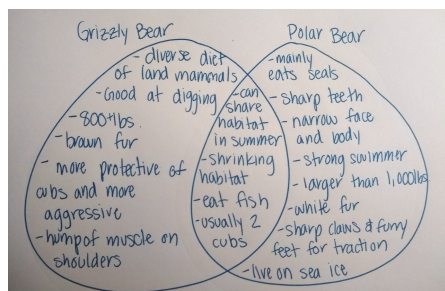 Grizzly Bear
- diverse diet
of land mammals
- Good at digging
- 800+lbs
- brown fur
- more protective of
cubs and more
aggressive
- hump of muscle on
shoulders
- can
share
habitat
in summer
- shrinking
habitat
- eat fish
- usually 2
cubs
Polar Bear
- mainly
eats seals
- sharp teeth
- narrow face
and body
- strong swimmer
- larger than 1,000lbs
- white fur
- sharp claws & furry
feet for traction
- live on sea ice